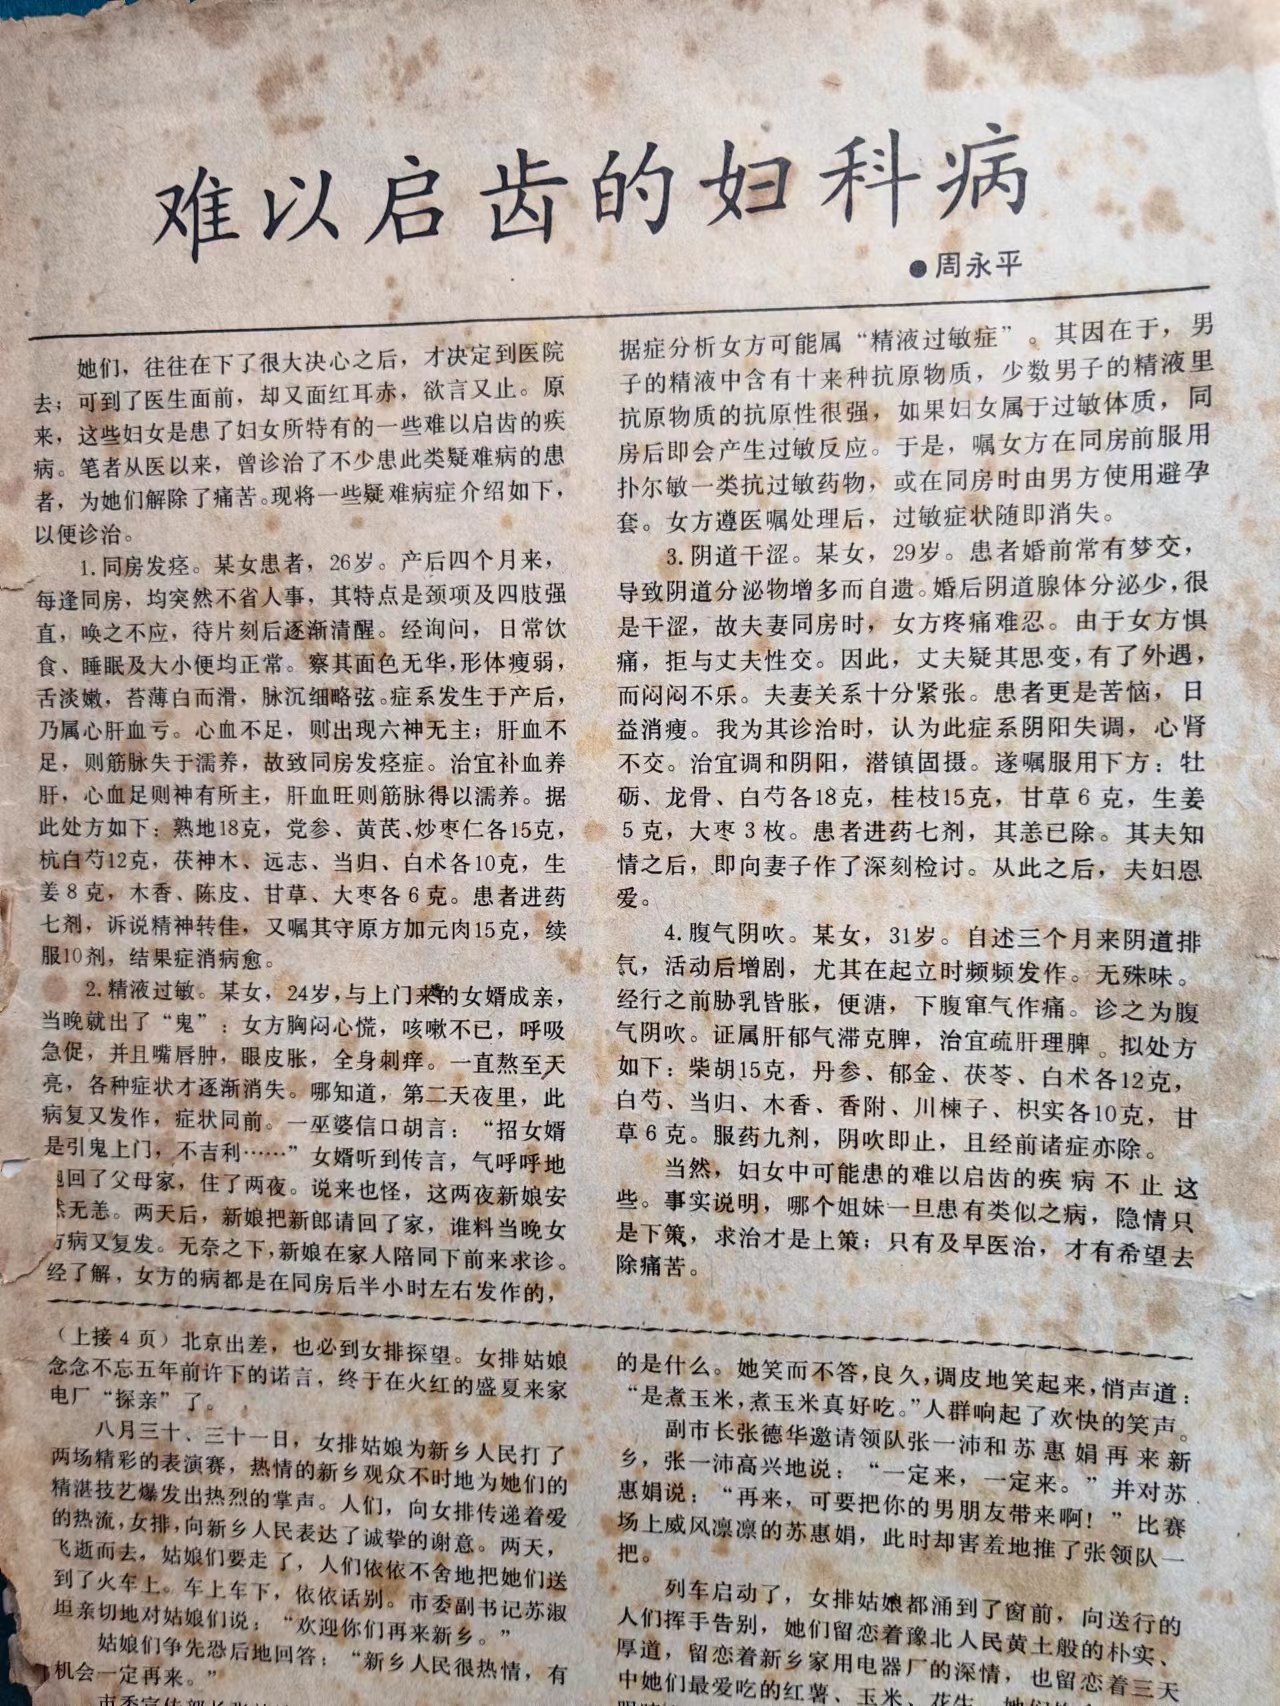 难以启齿的妇科病
●周永平
她们，往往在下了很大决心之后，才决定到医院
去；可到了医生面前，却又面红耳赤，欲言又止。原
来，这些妇女是患了妇女所特有的一些难以启齿的疾
病。笔者从医以来，曾诊治了不少患此类疑难病的患
者，为她们解除了痛苦。现将一些疑难病症介绍如下，
以便诊治。
1.同房发痉。某女患者，26岁。产后四个月来，
每逢同房，均突然不省人事，其特点是颈项及四肢强
直，唤之不应，待片刻后逐渐清醒。经询问，日常饮
食、睡眠及大小便均正常。察其面色无华，形体瘦弱，
舌淡嫩，苔薄白而滑，脉沉细略弦。症系发生于产后，
乃属心肝血亏。心血不足，则出现六神无主；肝血不
足，则筋脉失于濡养，故致同房发痉症。治宜补血养
肝，心血足则神有所主，肝血旺则筋脉得以濡养。据
此处方如下：熟地18克，党参、黄芪、炒枣仁各15克，
杭白芍12克，茯神木、远志、当归、白术各10克，生
姜8克，木香、陈皮、甘草、大枣各6克。患者进药
七剂，诉说精神转佳，又嘱其守原方加元肉15克，续
服10剂，结果症消病愈。
2.精液过敏。某女，24岁，与上门来的女婿成亲，
当晚就出了“鬼”：女方胸闷心慌，咳嗽不已，呼吸
急促，并且嘴唇肿，眼皮胀，全身刺痒。一直熬至天
亮，各种症状才逐渐消失。哪知道，第二天夜里，此
病复又发作，症状同前。一巫婆信口胡言：“招女婿
是引鬼上门，不吉利……”女婿听到传言，气呼呼地
回了父母家，住了两夜。说来也怪，这两夜新娘安
然无恙。两天后，新娘把新郎请回了家，谁料当晚女
方病又复发。无奈之下，新娘在家人陪同下前来求诊。
经了解，女方的病都是在同房后半小时左右发作的，
据症分析女方可能属“精液过敏症”。其因在于，男
子的精液中含有十来种抗原物质，少数男子的精液里
抗原物质的抗原性很强，如果妇女属于过敏体质，同
房后即会产生过敏反应。于是，嘱女方在同房前服用
扑尔敏一类抗过敏药物，或在同房时由男方使用避孕
套。女方遵医嘱处理后，过敏症状随即消失。
3.阴道干涩。某女，29岁。患者婚前常有梦交，
导致阴道分泌物增多而自遗。婚后阴道腺体分泌少，很
是干涩，故夫妻同房时，女方疼痛难忍。由于女方惧
痛，拒与丈夫性交。因此，丈夫疑其思变，有了外遇，
而闷闷不乐。夫妻关系十分紧张。患者更是苦恼，日
益消瘦。我为其诊治时，认为此症系阴阳失调，心肾
不交。治宜调和阴阳，潜镇固摄。遂嘱服用下方：牡
砺、龙骨、白芍各18克，桂枝15克，甘草6克，生姜
5克，大枣3枚。患者进药七剂，其恙已除。其夫知
情之后，即向妻子作了深刻检讨。从此之后，夫妇恩
爱。
4.腹气阴吹。某女，31岁。自述三个月来阴道排
气，活动后增剧，尤其在起立时频频发作。无殊味。
经行之前胁乳皆胀，便溏，下腹窜气作痛。诊之为腹
气阴吹。证属肝郁气滞克脾，治宜疏肝理脾。拟处方
如下：柴胡15克，丹参、郁金、茯苓、白术各12克，
白芍、当归、木香、香附、川楝子、枳实各10克，甘
草6克。服药九剂，阴吹即止，且经前诸症亦除。
当然，妇女中可能患的难以启齿的疾病不止这
些。事实说明，哪个姐妹一旦患有类似之病，隐情只
是下策，求治才是上策；只有及早医治，才有希望去
除痛苦。
（上接4页）北京出差，也必到女排探望。女排姑娘
念念不忘五年前许下的诺言，终于在火红的盛夏来家
电厂“探亲”了。
八月三十、三十一日，女排姑娘为新乡人民打了
两场精彩的表演赛，热情的新乡观众不时地为她们的
精湛技艺爆发出热烈的掌声。人们，向女排传递着爱
的热流，女排，向新乡人民表达了诚挚的谢意。两天，
飞逝而去，姑娘们要走了，人们依依不舍地把她们送
到了火车上。车上车下，依依话别。市委副书记苏淑
坦亲切地对姑娘们说：“欢迎你们再来新乡。”
姑娘们争先恐后地回答：“新乡人民很热情，有
机会一定再来。”
市委宣传部长
的是什么。她笑而不答，良久，调皮地笑起来，悄声道：
“是煮玉米，煮玉米真好吃。”人群响起了欢快的笑声。
副市长张德华邀请领队张一沛和苏惠娟再来新
乡，张一沛高兴地说：“一定来，一定来。”并对苏
惠娟说：“再来，可要把你的男朋友带来啊！”比赛
场上威风凛凛的苏惠娟，此时却害羞地推了张领队一
把。
列车启动了，女排姑娘都涌到了窗前，向送行的
人们挥手告别，她们留恋着豫北人民黄土般的朴实、
厚道，留恋着新乡家用电器厂的深情，也留恋着三天
中她们最爱吃的红薯、玉米、花生。